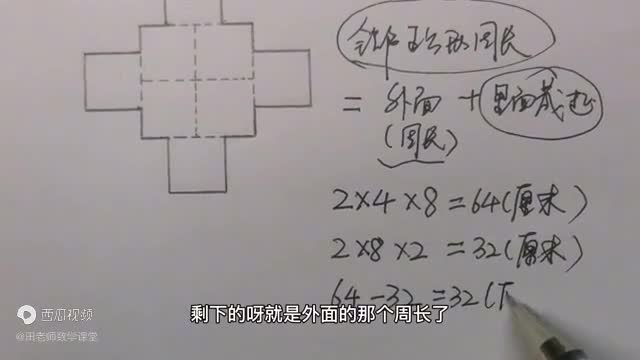 全部正方形周长
= 外面 + 里面裁边
(周长)
2×4×8=64(厘米)
2×8×2=32(厘米)
64-32=32(厂
剩下的呀就是外面的那个周长了
西瓜视频
@田老师数学课堂